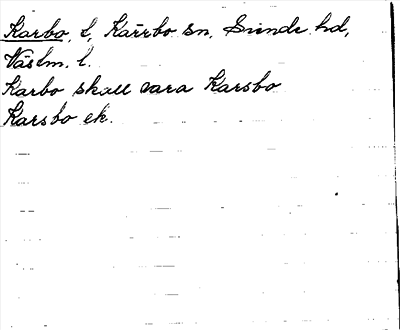 Karbo, l, Kärrbo sn, Siende hd,
Västm. l.
Karbo skall vara Karsbo
Karsbo ek.